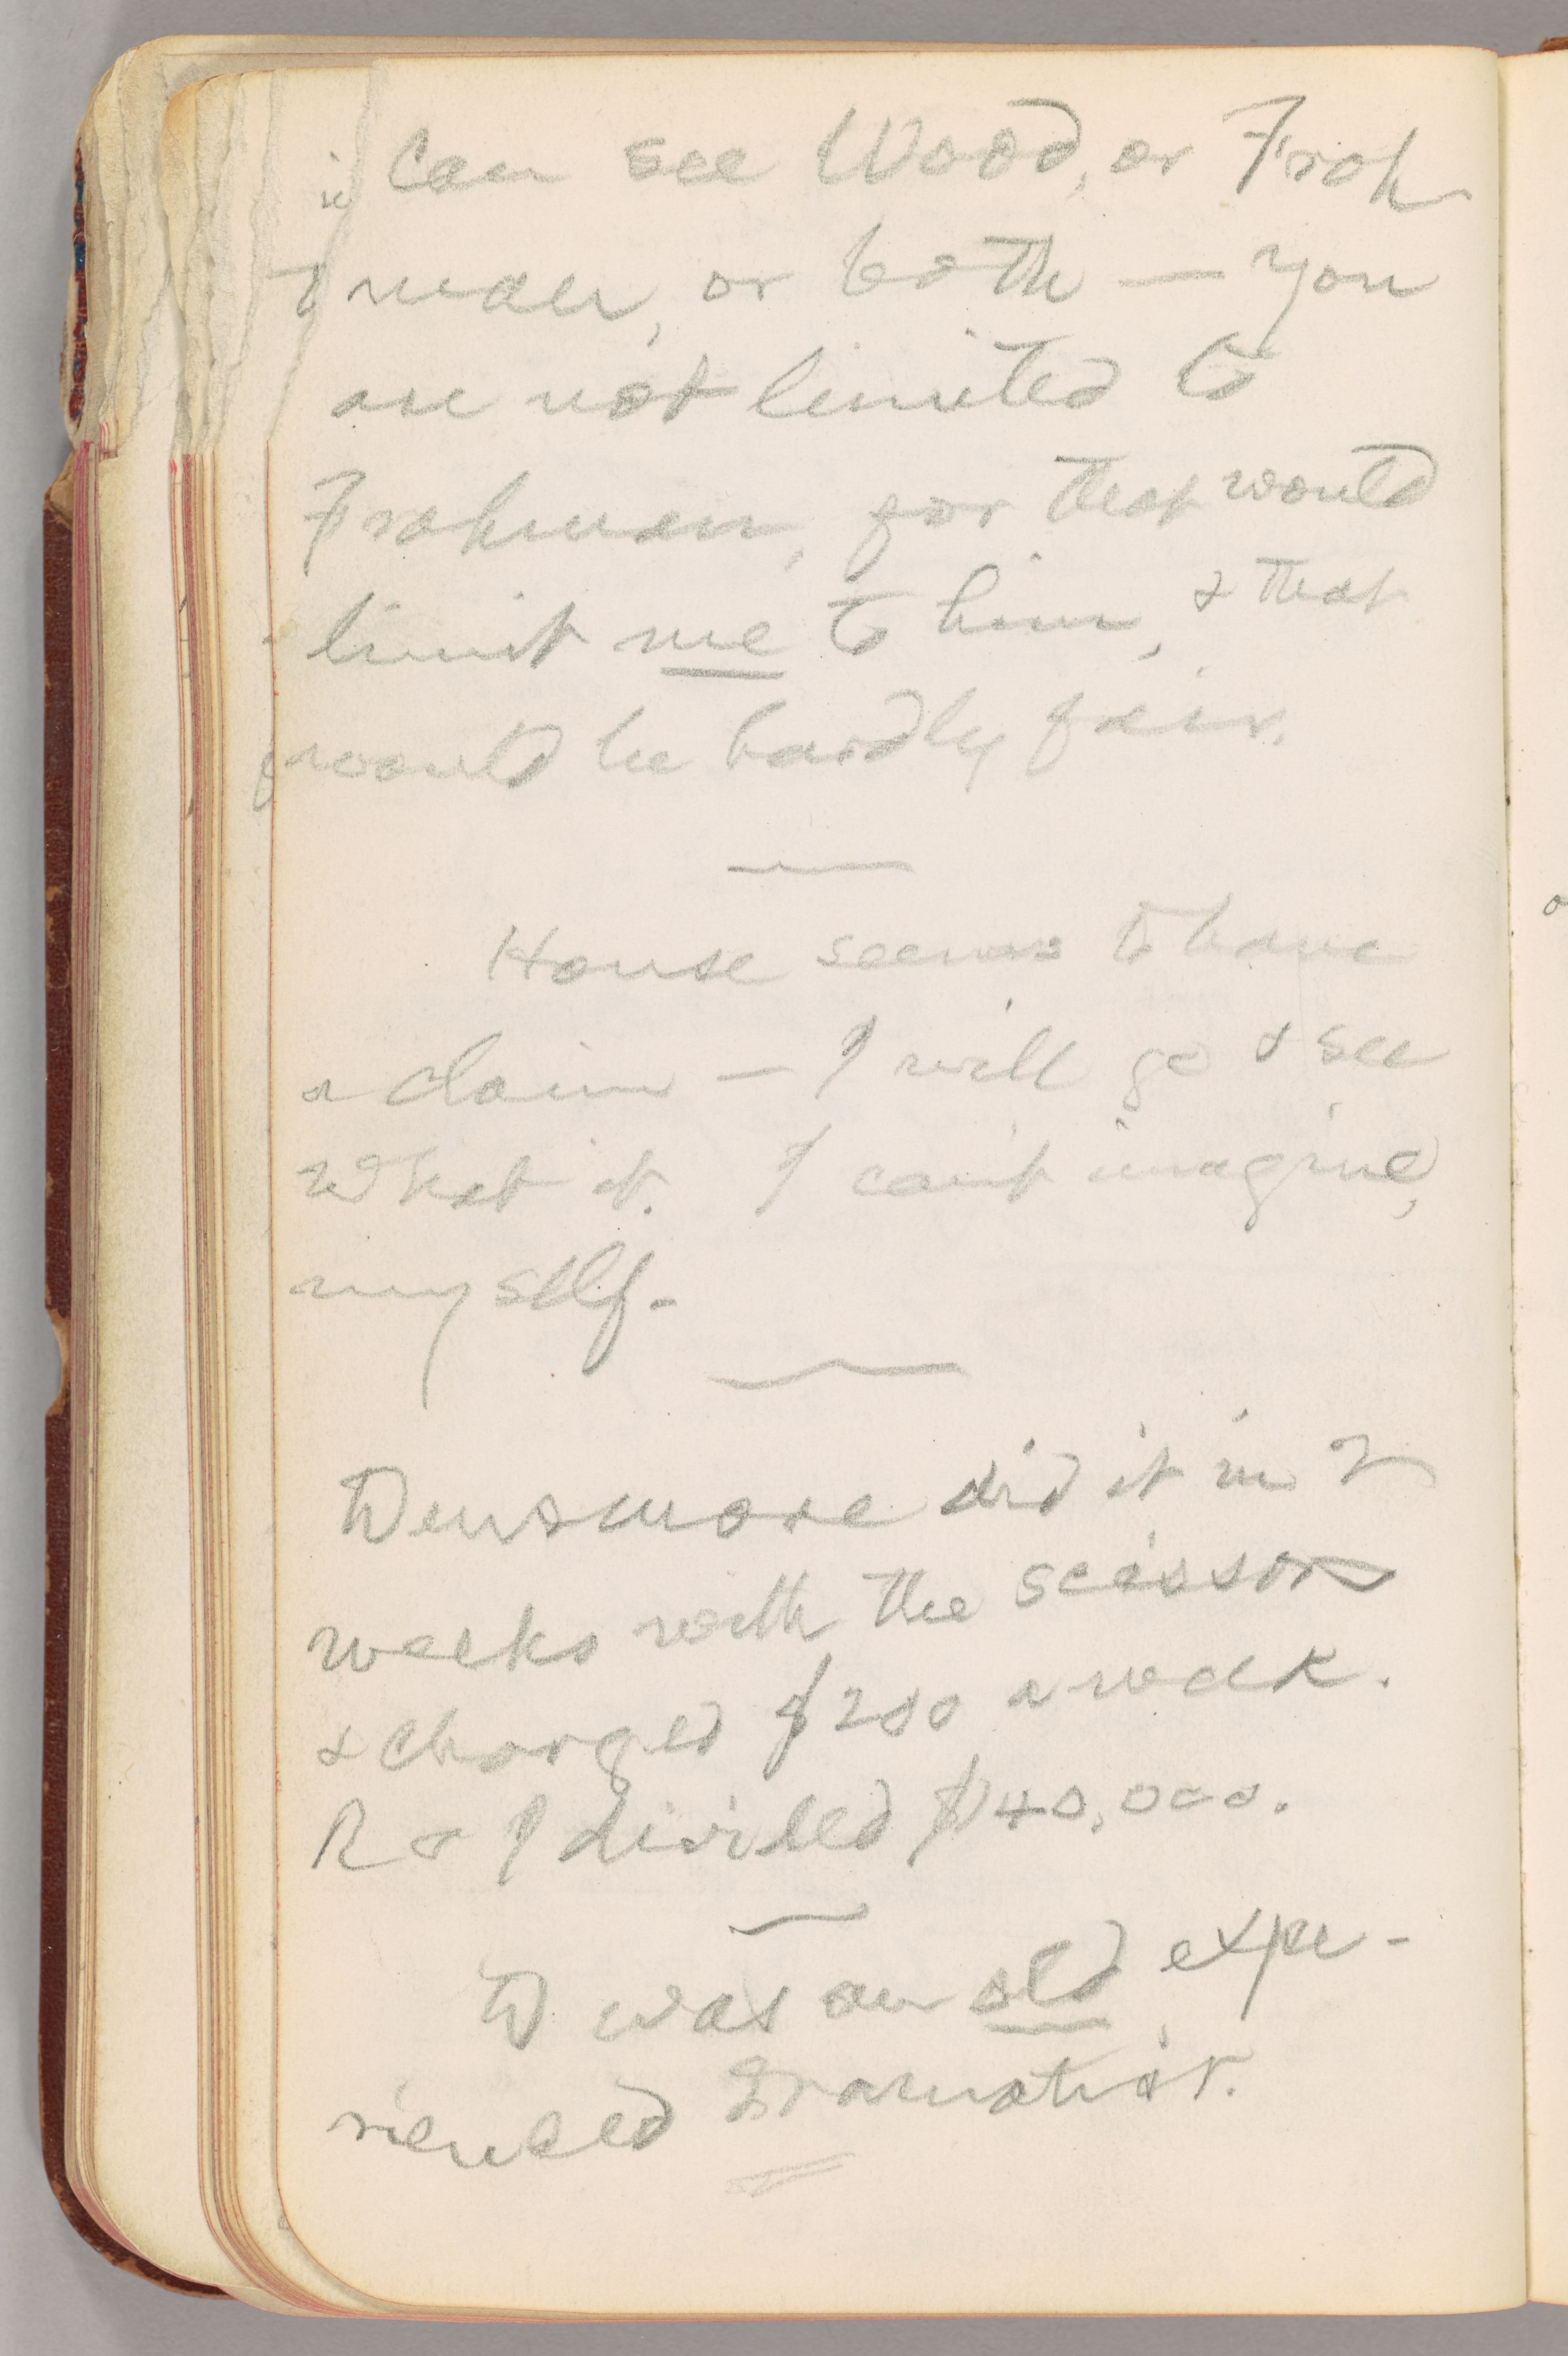 can see Wood, or Froh
man, or both — you
are not limited to
Frohman, for that would
limit me to him, & that
would be hardly fair.
House seems to have
a claim — I will go & see
what it. I can't imagine,
myself.
Densmore did it in 2
weeks with the scissors
& charged $200 a week.
R & I divided $140,000.
D was an old expe-
rienced dramatist.